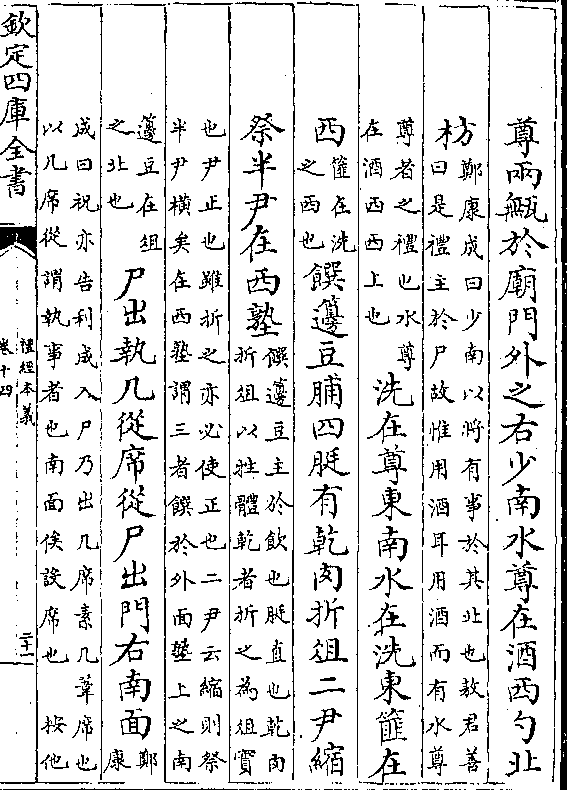 尊兩甒於廟門外之右少南水尊在酒西勺北
枋
鄭康成曰少南以將有事於其北也敖君善
曰是禮主於尸故惟用酒耳用酒而有水尊
尊者之禮也水尊
在酒西西上也
洗在尊東南水在洗東篚在
西
篚在洗
之西也
饌籩豆脯四脡有乾肉折俎二尹縮
祭半尹在西塾
饌籩豆主於飲也脡直也乾肉
折俎以牲體乾者折之為俎實
也尹正也雖折之亦必使正也二尹云縮則祭
半尹橫矣在西塾謂三者饌於外面塾上之南
籩豆在俎
之北也
尸出執几從席從尸出門右南面
鄭
康
成曰祝亦告利成入尸乃出几席素几葦席也
以几席從謂執事者也南面俟設席也 按他
欽定四庫全書
禮經本義
卷十四
二十一